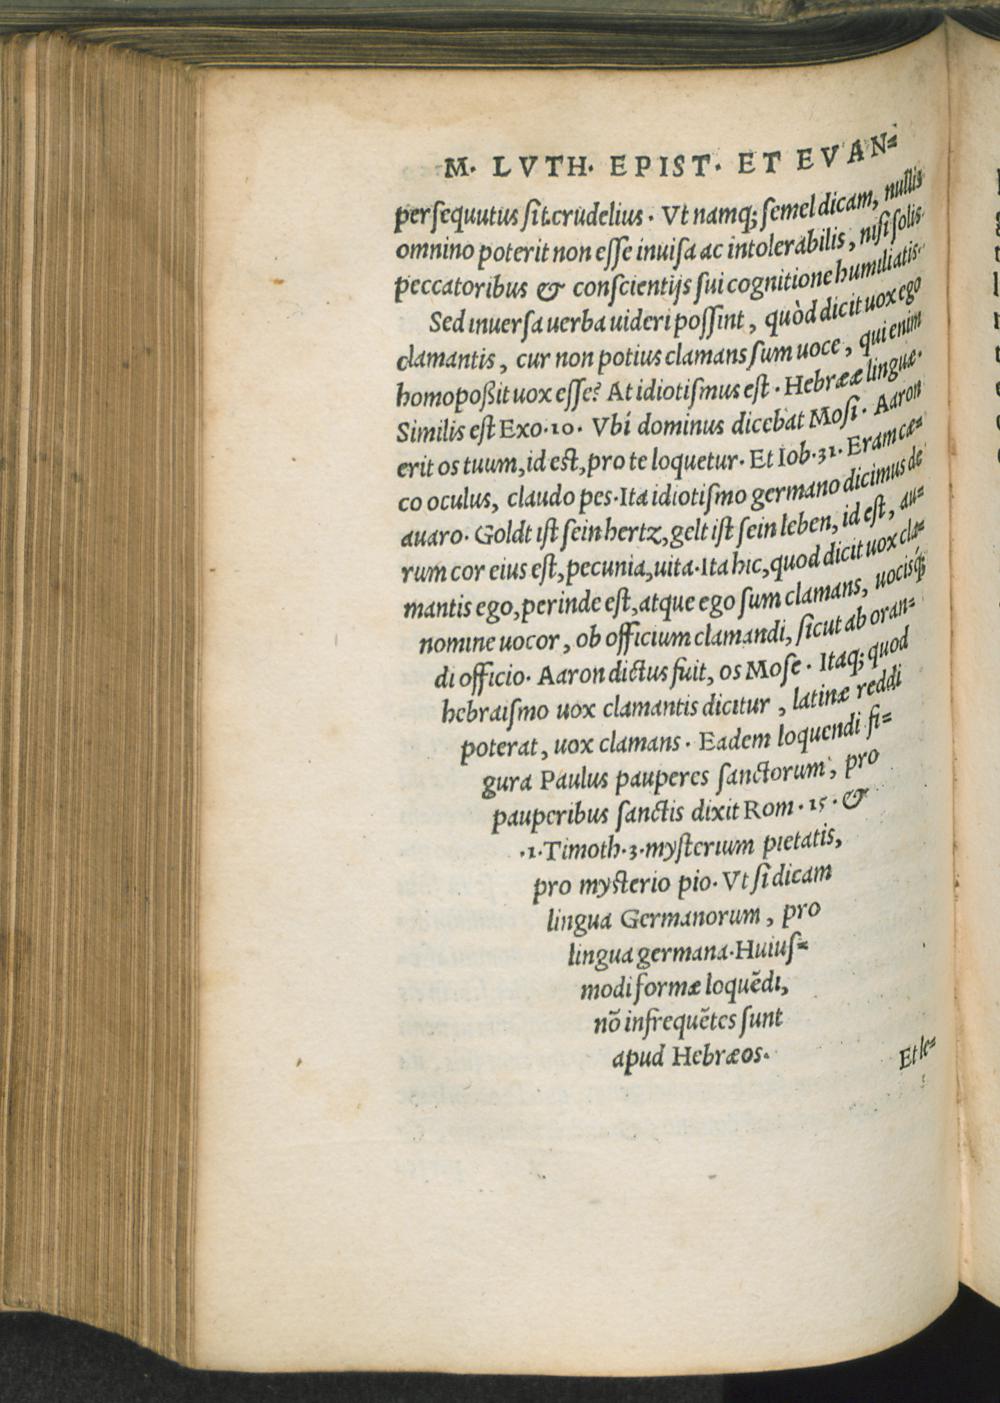 M. LVTH. EPIST. ET EVAN=
persequutus sit crudelius. Vt namq; semel dicam, nullis
omnino poterit non esse inuisa ac intolerabilis, nisi solis
peccatoribus & conscientijs sui cognitione humiliatis.
Sed inuersa uerba uideri possint, quòd dicit uox ego
clamantis, cur non potius clamans sum uoce, qui enim
homo poßit uox esse? At idiotismus est. Hebrææ linguæ.
Similis est Exo.10. Vbi dominus dicebat Mosi. Aaron
erit os tuum, id est, pro te loquetur. Et Iob.31. Eram cæ=
co oculus, claudo pes. Ita idiotismo germano dicimus de
auaro. Goldt ist sein hertz, gelt ist sein leben, id est, au=
rum cor eius est, pecunia, uita. Ita hic, quod dicit uox cla=
mantis ego, perinde est, atque ego sum clamans, uocisq́;
nomine uocor, ob officium clamandi, sicut ab oran=
di officio. Aaron dictus fuit, os Mose. Itaq; quod
hebraismo uox clamantis dicitur, latinæ reddi
poterat, uox clamans. Eadem loquendi fi=
gura Paulus pauperes sanctorum, pro
pauperibus sanctis dixit Rom. 15. &
.1. Timoth.3. mysterium pietatis,
pro mysterio pio. Vt si dicam
lingua Germanorum, pro
lingua germana. Huius=
modi formæ loquẽdi,
nõ infrequẽtes sunt
apud Hebræos.
Et le=